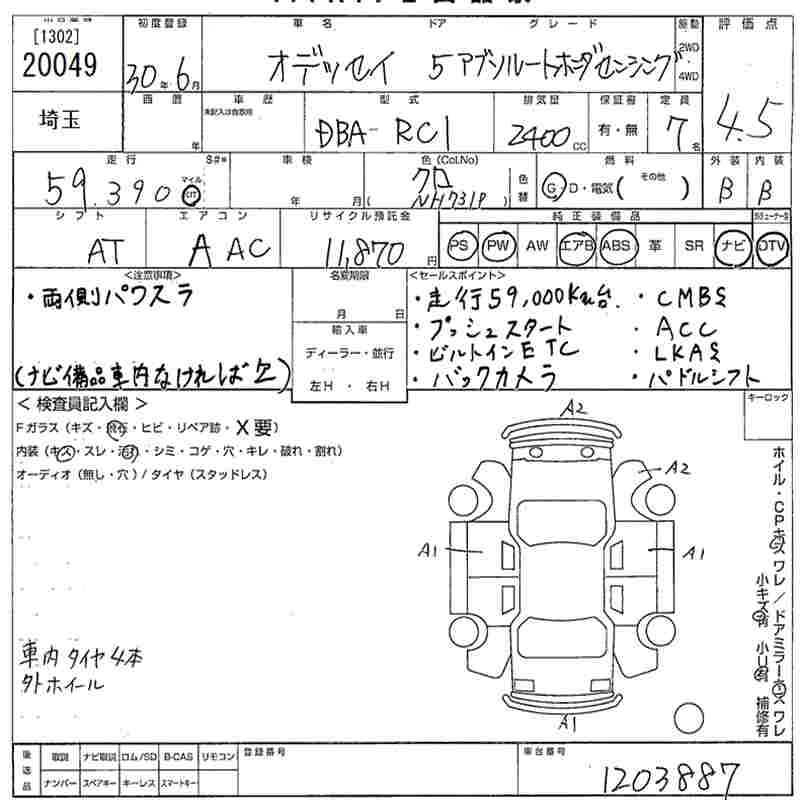 [1302]
20049
初度登録
30年6月
車名
オデッセイ
ドア
5
グレード
アブソルートホンダセンシング
駆動
2WD
4WD
評価点
4.5
埼玉
西暦
年
車歴
未記入は自家用
型式
DBA-RC1
排気量
2400CC
保証書
有・無
定員
7名
走行
59,390
マイル
km
S#*
車検
年 月
色(Col.No)
クロ
(NH731P)
色替
燃料
G・D・電気(その他)
外装
B
内装
B
シフト
AT
エアコン
AAC
リサイクル預託金
11,870円
純正装備品
PS PW AW エアB ABS 革 SR ナビ DTV
<注意事項>
・両側パワスラ
(ナビ備品車内なければ欠)
名変期限
月 日
輸入車
ディーラー・並行
左H ・ 右H
<セールスポイント>
・走行59,000Km台 ・CMBS
・プッシュスタート ・ACC
・ビルトインETC ・LKAS
・バックカメラ ・パドルシフト
<検査員記入欄>
Fガラス(キズ・飛石・ヒビ・リペア跡・X要)
内装(キズ・スレ・汚れ・シミ・コゲ・穴・キレ・破れ・割れ)
オーディオ(無し・穴)/タイヤ(スタッドレス)
キーロック
A2
A2
A1
A1
A1
ホイル・CPキズ ワレ/ドアミラーキズ ワレ
小キズ有 小U有 補修有
車内タイヤ4本
外ホイール
後送品
取説 ナビ取説 ロム/SD B-CAS リモコン
ナンバー スペアキー キーレス スマートキー
登録番号
車台番号
1203887